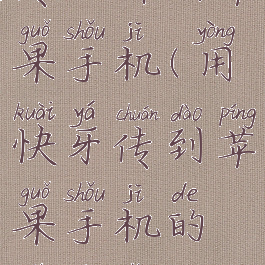 guǒ shǒu jī yòng
果手机(用
kuài yá chuán dào píng
快牙传到苹
guǒ shǒu jī de
果手机的